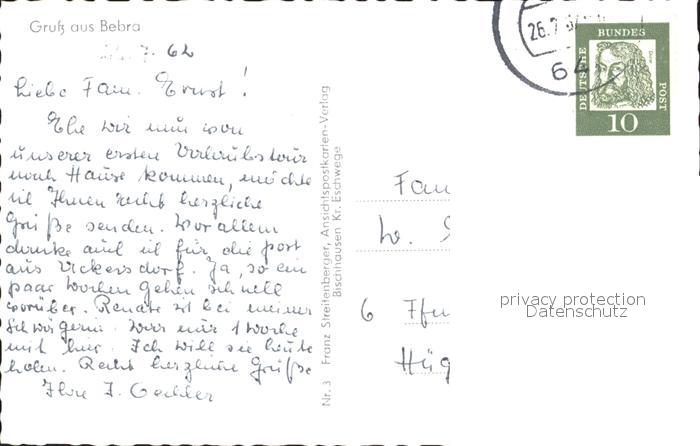 Gruß aus Bebra
26.7.62
Liebe Fam. Ernst!
Ehe wir nun von
unserer ersten Urlaubstour
nach Hause kommen, möchte
ich Ihnen recht herzliche
Grüße senden. Vor allem
danke auch ich für die Post
aus Uckersdorf. Ja, so ein
paar Wochen gehen schnell
vorüber. Renate ist bei meiner
Schwägerin. War nur 1 Woche
mit hier. Ich will sie heute
holen. Recht herzliche Grüße
Ihre J.
Nr. 3 Franz Streitenberger, Ansichtspostkarten-Verlag
Bischhausen Kr. Eschwege
26.7
64
DEUTSCHE BUNDES POST
Dürer
10
Fam
W.
6 Ffm
Hüg
privacy protection
Datenschutz